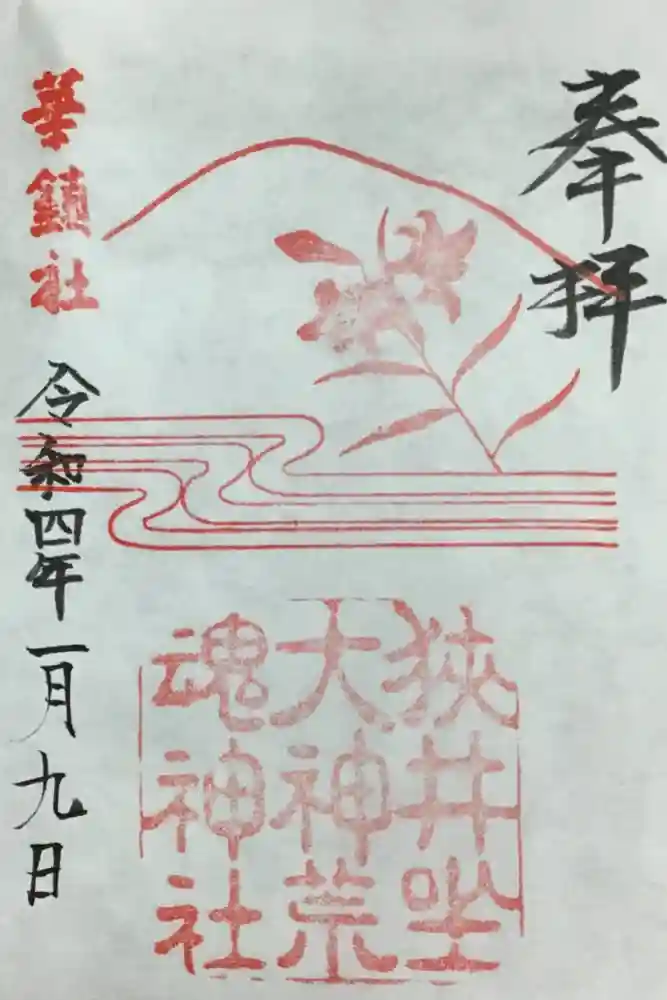 奉拝
華鎮社
令和四年一月九日
狭井坐
大神荒
魂神社